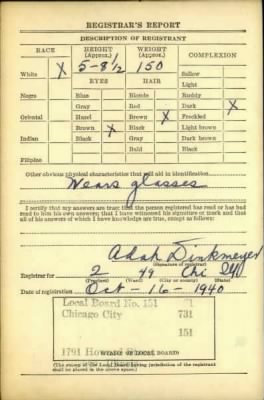 REGISTRAR'S REPORT
DESCRIPTION OF REGISTRANT
RACE HEIGHT (Approx.) WEIGHT (Approx.) COMPLEXION
White X 5-8 1/2 150 Sallow
EYES HAIR Light
Negro Blue Blonde Ruddy
Gray Red Dark X
Oriental Hazel Brown X Freckled
Brown X Black Light brown
Indian Black Gray Dark brown
Bald Black
Filipino
Other obvious physical characteristics that will aid in identification
Wears glasses
I certify that my answers are true; that the person registered has read or has had
read to him his own answers; that I have witnessed his signature or mark and that
all of his answers of which I have knowledge are true, except as follows:
Adah Dinkmeyer
(Signature of registrar)
Registrar for 2 49 Chi Ill
(Precinct) (Ward) (City or county) (State)
Date of registration Oct-16-1940
Local Board No. 151
Chicago City 731
151
1791 Howard
(STAMP OF LOCAL BOARD)
(The stamp of the Local Board having jurisdiction of the registrant
shall be placed in the above space.)